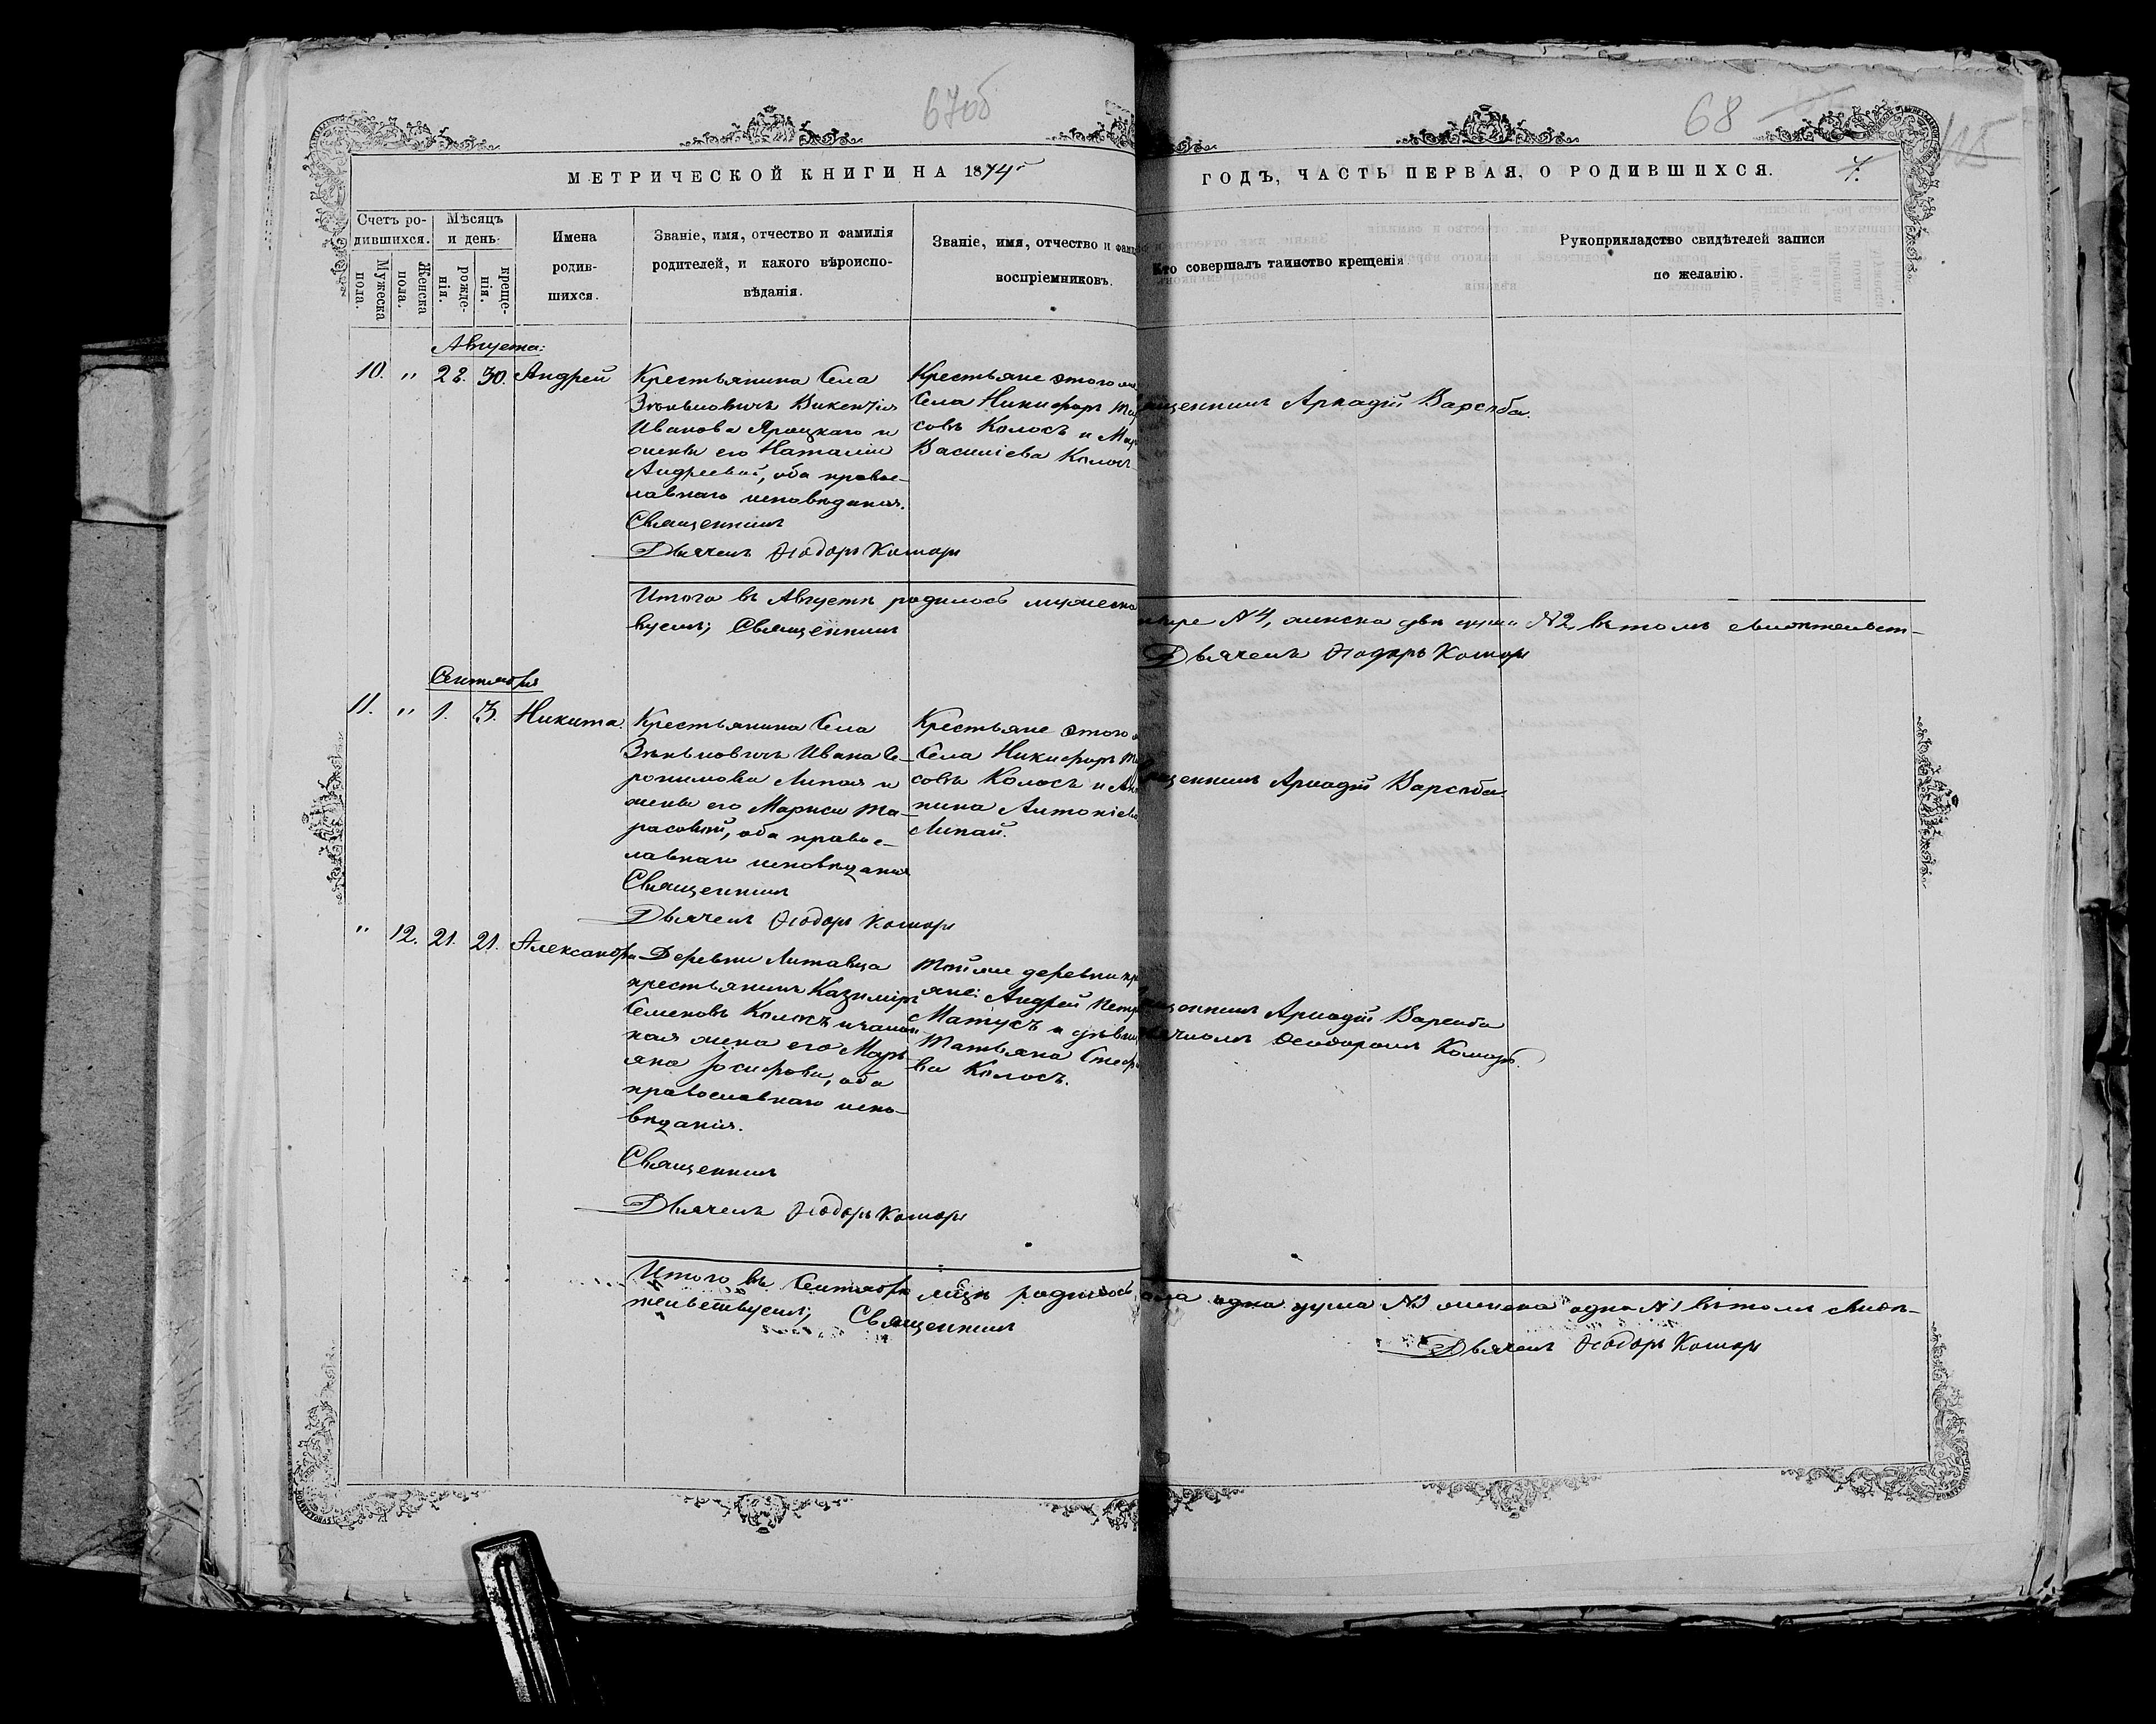 67об
68
МЕТРИЧЕСКОЙ КНИГИ НА 1874
ГОДЪ, ЧАСТЬ ПЕРВАЯ, О РОДИВШИХСЯ.
Счетъ ро-
дившихся.
Мужеска
пола.
Женска
пола.
Мѣсяцъ
и день.
рожде-
нія.
креще-
нія.
Имена
родив-
шихся.
Званіе, имя, отчество и фамилія
родителей, и какого вѣроиспо-
вѣданія.
Званіе, имя, отчество и фами
воспріемниковъ.
Кто совершалъ таинство крещенія
Рукоприкладство свидѣтелей записи
по желанію.
Августа:
10. " 28. 30. Андрей
Крестьянина Села
Викентія
Иванова Яроцкаго и
жены его Наталіи
Андреевой, оба правос-
лавнаго исповѣданія.
Священникъ
Дьячекъ Ѳеодоръ Комаръ
Крестьяне этого же
Села Никифоръ
совъ Колосъ и
Василіева Колосъ
щенникъ Аркадій
Итого въ Августѣ родилось мужеска
№4, женска двѣ души №2 въ томъ свидѣтельст-
вуемъ; Священникъ
Дьячекъ Ѳеодоръ Комаръ
Сентября
11. " 1. 3. Никита.
Крестьянина Села
Ивана Іе-
ронимова Липая и
жены его Марѳы Та-
расовой, оба правос-
лавнаго исповѣданія
Священникъ
Дьячекъ Ѳеодоръ Комаръ
Крестьяне этого
Села Никифоръ
совъ Колосъ и
нина Антоніева
Липай.
щенникъ Аркадій
" 12. 21. 21. Александра
Деревни Литавца
крестьянинъ Казиміръ
Семеновъ Колосъ и закон
ная жена его Марь
яна Іосифова, оба
православнаго испо-
вѣданія.
Священникъ
Дьячекъ Ѳеодоръ Комаръ
Той же деревни
яне: Андрей Петр
Матусъ и дѣвица
Татьяна
ва Колосъ.
щенникъ Аркадій
Ѳеодоромъ Комаръ.
Итого въ Сентябрѣ мѣсяцѣ родилось
одна душа №1 женска одна №1 въ томъ свидѣ-
тельствуемъ; Священникъ
Дьячекъ Ѳеодоръ Комаръ